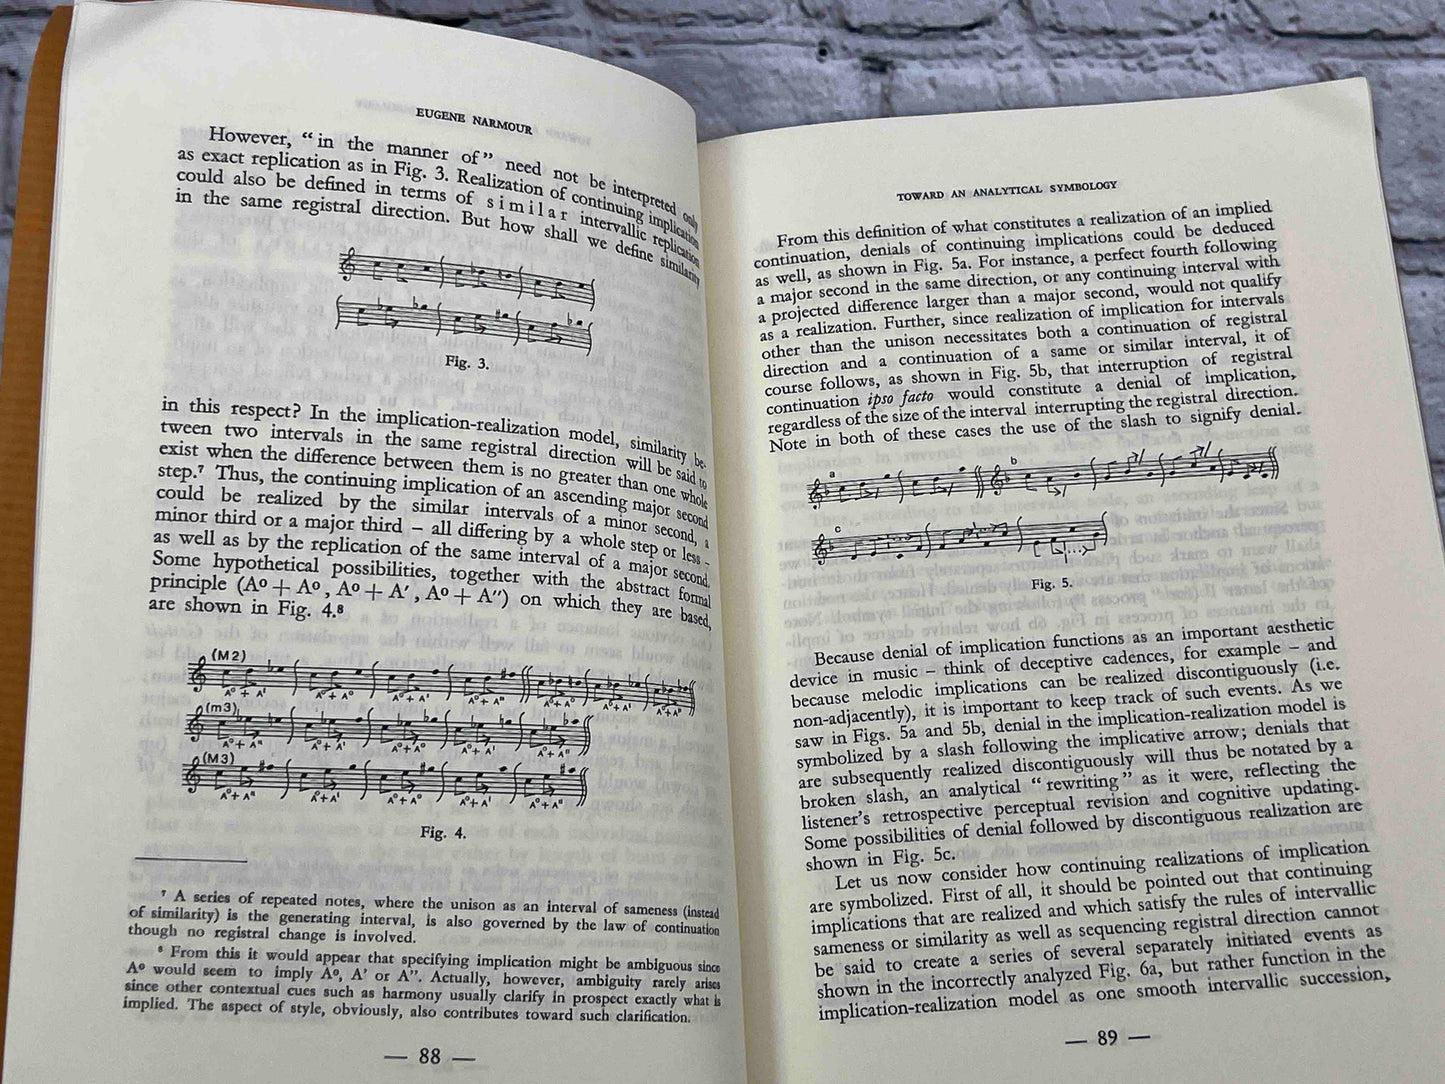 EUGENE NARMOUR
However, “in the manner of” need not be interpreted only
as exact replication as in Fig. 3. Realization of continuing implication
could also be defined in terms of similar intervallic replication
in the same registral direction. But how shall we define similarity
Fig. 3.
in this respect? In the implication-realization model, similarity be-
tween two intervals in the same registral direction will be said to
exist when the difference between them is no greater than one whole
step.⁷ Thus, the continuing implication of an ascending major second
could be realized by the similar intervals of a minor second, a
minor third or a major third – all differing by a whole step or less –
as well as by the replication of the same interval of a major second.
Some hypothetical possibilities, together with the abstract formal
principle (A⁰ + A⁰, A⁰ + A′, A⁰ + A″) on which they are based,
are shown in Fig. 4.⁸
(M2)
A⁰ + A' A⁰ + A⁰ A⁰ + A' A⁰ + A⁰ A⁰ + A' A⁰ + A"
(m3)
A⁰ + A" A⁰ + A' A⁰ + A⁰ A⁰ + A' A⁰ + A"
(M3)
A⁰ + A" A⁰ + A' A⁰ + A⁰ A⁰ + A' A⁰ + A"
Fig. 4.
⁷ A series of repeated notes, where the unison as an interval of sameness (instead
of similarity) is the generating interval, is also governed by the law of continuation
though no registral change is involved.
⁸ From this it would appear that specifying implication might be ambiguous since
A⁰ would seem to imply A⁰, A' or A”. Actually, however, ambiguity rarely arises
since other contextual cues such as harmony usually clarify in prospect exactly what is
implied. The aspect of style, obviously, also contributes toward such clarification.
— 88 —
TOWARD AN ANALYTICAL SYMBOLOGY
From this definition of what constitutes a realization of an implied
continuation, denials of continuing implications could be deduced
as well, as shown in Fig. 5a. For instance, a perfect fourth following
a major second in the same direction, or any continuing interval with
a projected difference larger than a major second, would not qualify
as a realization. Further, since realization of implication for intervals
other than the unison necessitates both a continuation of registral
direction and a continuation of a same or similar interval, it of
course follows, as shown in Fig. 5b, that interruption of registral
continuation ipso facto would constitute a denial of implication,
regardless of the size of the interval interrupting the registral direction.
Note in both of these cases the use of the slash to signify denial.
a b
c
Fig. 5.
Because denial of implication functions as an important aesthetic
device in music – think of deceptive cadences, for example – and
because melodic implications can be realized discontiguously (i.e.
non-adjacently), it is important to keep track of such events. As we
saw in Figs. 5a and 5b, denial in the implication-realization model is
symbolized by a slash following the implicative arrow; denials that
are subsequently realized discontiguously will thus be notated by a
broken slash, an analytical “rewriting” as it were, reflecting the
listener’s retrospective perceptual revision and cognitive updating.
Some possibilities of denial followed by discontiguous realization are
shown in Fig. 5c.
Let us now consider how continuing realizations of implication
are symbolized. First of all, it should be pointed out that continuing
implications that are realized and which satisfy the rules of intervallic
sameness or similarity as well as sequencing registral direction cannot
be said to create a series of several separately initiated events as
shown in the incorrectly analyzed Fig. 6a, but rather function in the
implication-realization model as one smooth intervallic succession,
— 89 —